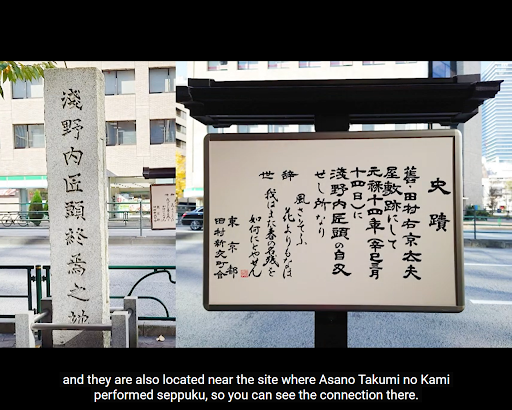 淺野内匠頭終焉之地
史蹟
舊・田村右京太夫
屋敷跡にして
元禄十四年(辛巳)三月
十四日に
淺野内匠頭の自刃
せし所なり
辞世
風さそふ
花よりもなほ
我はまた春の名残を
如何にとやせん
東京都
田村新交町會
and they are also located near the site where Asano Takumi no Kami
performed seppuku, so you can see the connection there.